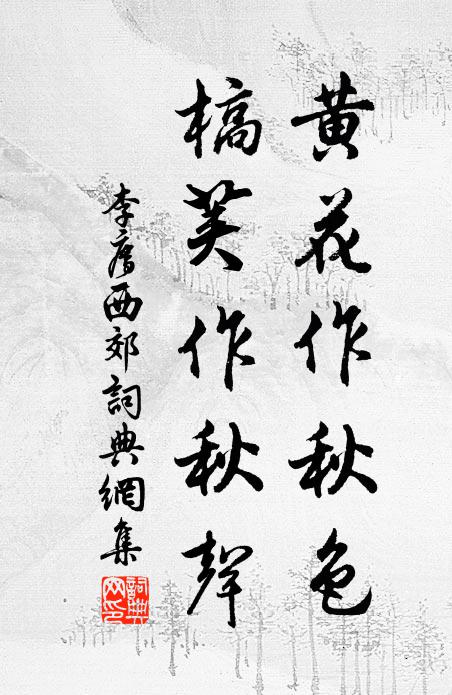 黄花作秋色
槁荚作秋聲
李廌西郊詞典網集
詞典网印